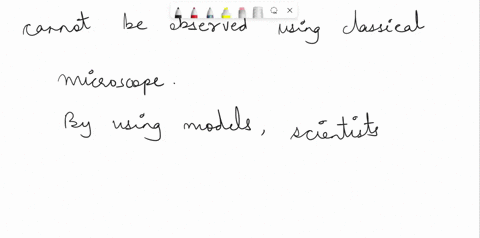 cannot be observed using classical
microscope.
By using models, scientists